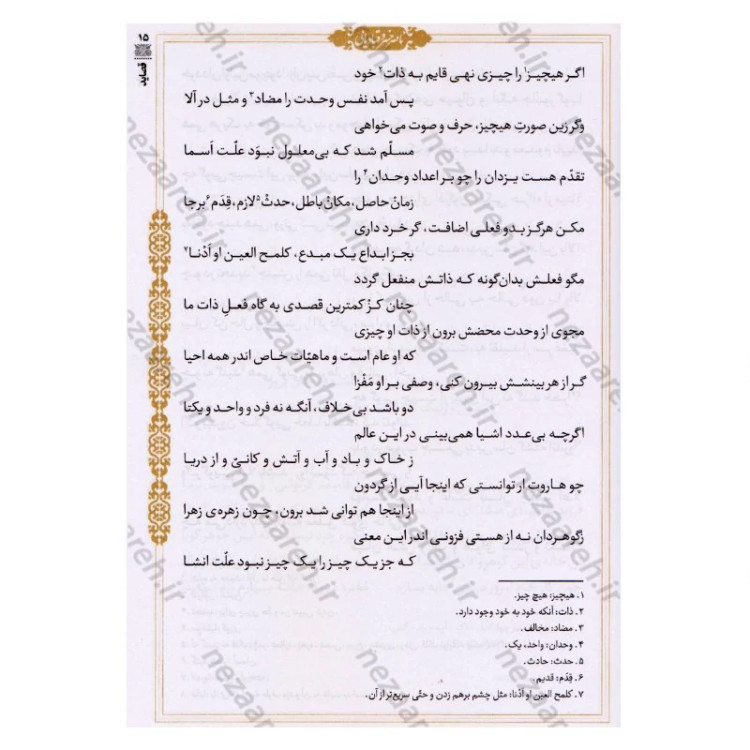 ناصرخسرو قبادیانی
۱۵
قصاید
اگر هیچیز۱ را چیزی نهی قایم به ذات۲ خود
پس آمد نفس وحدت را مضاد۳ و مثل در آلا
وگر زین صورتِ هیچیز، حرف و صوت می‌خواهی
مسلّم شد که بی‌معلول نبوَد علّت اَسما
تقدّم هست یزدان را چو بر اعداد وحدان۴ را
زمانْ حاصل، مکانْ باطل، حدثْ۵ لازم، قِدَم۶ برجا
مکن هرگز بدو فعلی اضافت، گر خرد داری
بجز ابداع یک مبدع، کلمح العین او اَدْنا۷
مگو فعلش بدان‌گونه که ذاتش منفعل گردد
چنان کز کمترین قصدی به گاه فعلِ ذات ما
مجوی از وحدت محضش برون از ذات او چیزی
که او عام است و ماهیّات خاص اندر همه احیا
گر از هر بینشش بیرون کنی، وصفی بر او مَفْزا
دو باشد بی‌خلاف، آنگه نه فرد و واحد و یکتا
اگرچه بی‌عدد اشیا همی‌بینی در این عالم
ز خاک و باد و آب و آتش و کانیّ و از دریا
چو هاروت ار توانستی که اینجا آیی از گردون
از اینجا هم توانی شد برون، چون زهره‌ی زهرا
زگوهردان نه از هستی فزونی اندر این معنی
که جز یک چیز را یک چیز نبود علّت انشا
۱. هیچیز: هیچ چیز.
۲. ذات: آنکه خود به خود وجود دارد.
۳. مضاد: مخالف.
۴. وحدان: واحد، یک.
۵. حدث: حادث.
۶. قِدَم: قدیم.
۷. کلمح العین او اَدْنا: مثل چشم برهم زدن و حتّی سریع‌تر از آن.
nezaareh.ir